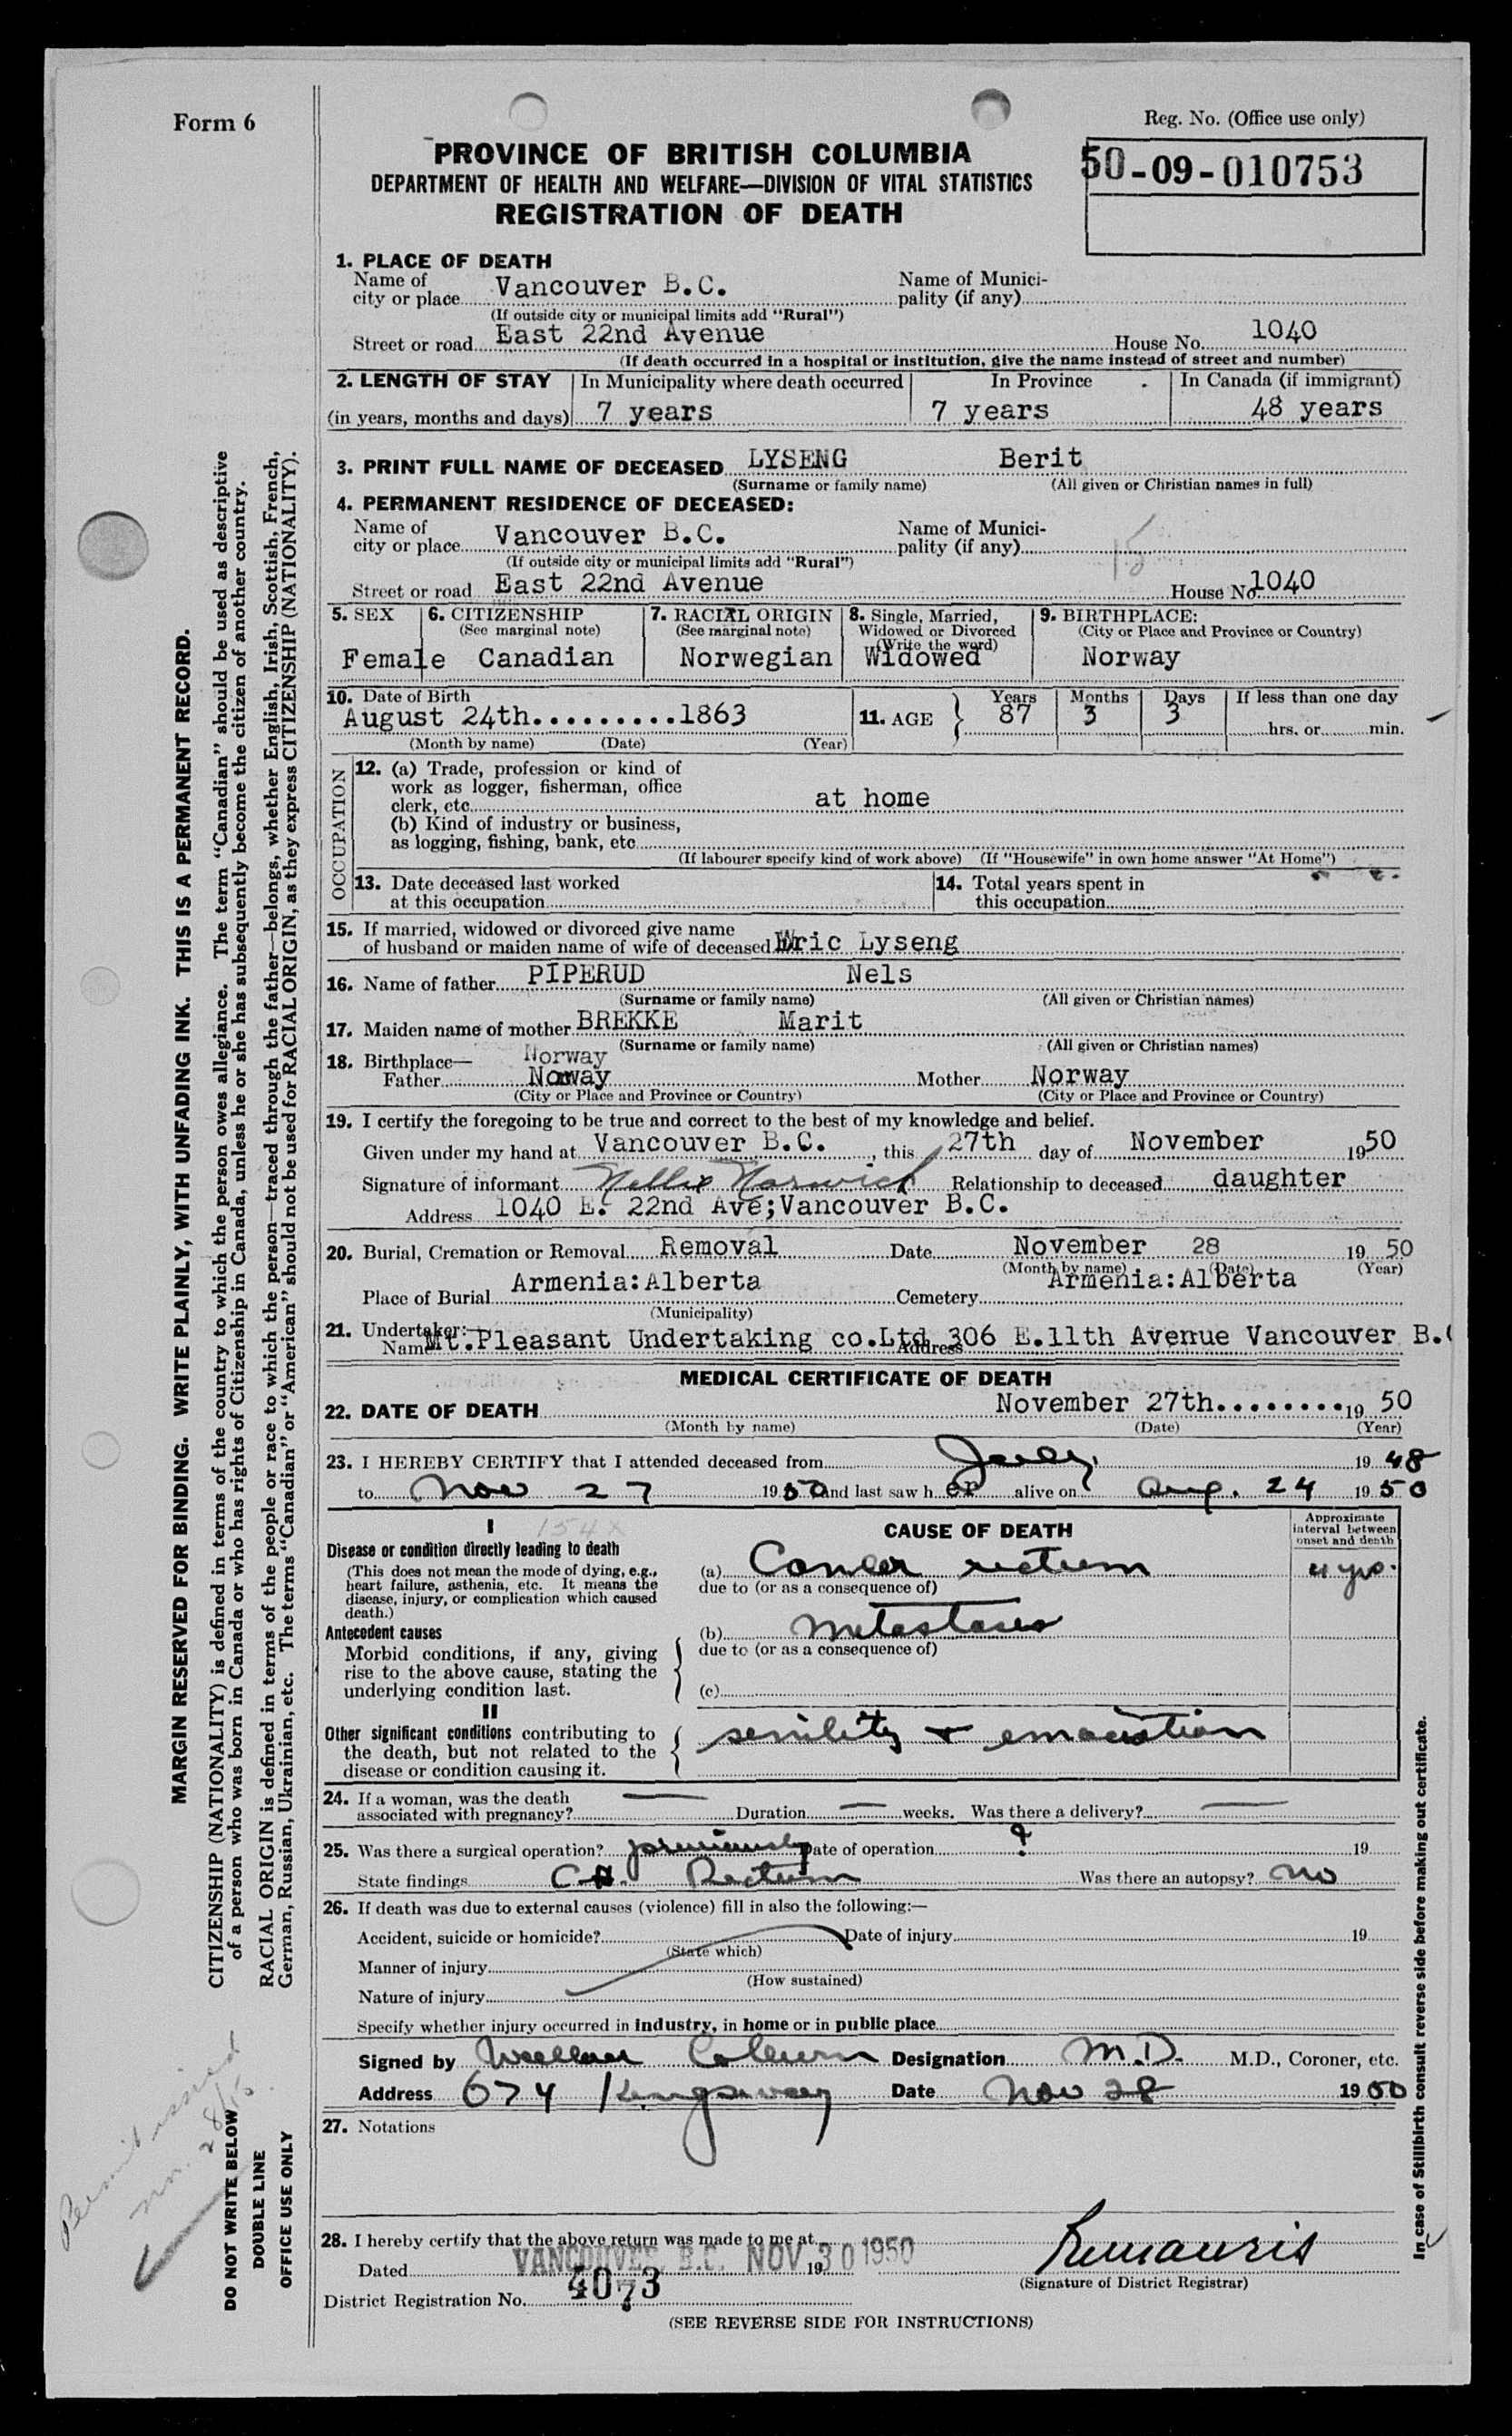 Form 6
Reg. No. (Office use only)
PROVINCE OF BRITISH COLUMBIA
50-09-010753
DEPARTMENT OF HEALTH AND WELFARE—DIVISION OF VITAL STATISTICS
REGISTRATION OF DEATH
1. PLACE OF DEATH
Name of city or place Vancouver B.C. Name of Municipality (if any)
(If outside city or municipal limits add "Rural")
Street or road East 22nd Avenue House No. 1040
(If death occurred in a hospital or institution, give the name instead of street and number)
2. LENGTH OF STAY In Municipality where death occurred In Province In Canada (if immigrant)
(in years, months and days) 7 years 7 years 48 years
3. PRINT FULL NAME OF DECEASED LYSENG Berit
(Surname or family name) (All given or Christian names in full)
4. PERMANENT RESIDENCE OF DECEASED:
Name of city or place Vancouver B.C. Name of Municipality (if any) 15
(If outside city or municipal limits add "Rural")
Street or road East 22nd Avenue House No. 1040
5. SEX 6. CITIZENSHIP 7. RACIAL ORIGIN 8. Single, Married, Widowed or Divorced 9. BIRTHPLACE:
(See marginal note) (See marginal note) (Write the word) (City or Place and Province or Country)
Female Canadian Norwegian Widowed Norway
10. Date of Birth Years Months Days If less than one day
August 24th.........1863 11. AGE 87 3 3 hrs. or min.
(Month by name) (Date) (Year)
OCCUPATION
12. (a) Trade, profession or kind of
work as logger, fisherman, office
clerk, etc. at home
(b) Kind of industry or business,
as logging, fishing, bank, etc.
(If labourer specify kind of work above) (If "Housewife" in own home answer "At Home")
13. Date deceased last worked 14. Total years spent in
at this occupation this occupation
15. If married, widowed or divorced give name
of husband or maiden name of wife of deceased Eric Lyseng
16. Name of father PIPERUD Nels
(Surname or family name) (All given or Christian names)
17. Maiden name of mother BREKKE Marit
(Surname or family name) (All given or Christian names)
18. Birthplace— Norway
Father Noway Mother Norway
(City or Place and Province or Country) (City or Place and Province or Country)
19. I certify the foregoing to be true and correct to the best of my knowledge and belief.
Given under my hand at Vancouver B.C., this 27th day of November 1950
Signature of informant Nellie Norwich Relationship to deceased daughter
Address 1040 E. 22nd Ave;Vancouver B.C.
20. Burial, Cremation or Removal Removal Date November 28 19 50
(Month by name) (Date) (Year)
Place of Burial Armenia:Alberta Cemetery Armenia:Alberta
(Municipality)
21. Undertaker:—
Name Mt.Pleasant Undertaking co.Ltd Address 306 E.11th Avenue Vancouver B.
MEDICAL CERTIFICATE OF DEATH
22. DATE OF DEATH November 27th........19 50
(Month by name) (Date) (Year)
23. I HEREBY CERTIFY that I attended deceased from July 19 48
to Nov 27 1950 and last saw her alive on Aug. 24 19 50
I 154x
Disease or condition directly leading to death
(This does not mean the mode of dying, e.g.,
heart failure, asthenia, etc. It means the
disease, injury, or complication which caused
death.)
CAUSE OF DEATH
Approximate interval between onset and death
(a) Cancer rectum 4 yrs.
due to (or as a consequence of)
Antecedent causes
Morbid conditions, if any, giving
rise to the above cause, stating the
underlying condition last.
(b) metastases
due to (or as a consequence of)
(c)
II
Other significant conditions contributing to
the death, but not related to the
disease or condition causing it.
senility + emaciation
24. If a woman, was the death
associated with pregnancy? — Duration — weeks. Was there a delivery? —
25. Was there a surgical operation? previously Date of operation ? 19
State findings Ca. Rectum Was there an autopsy? no
26. If death was due to external causes (violence) fill in also the following:—
Accident, suicide or homicide? Date of injury 19
(State which)
Manner of injury
(How sustained)
Nature of injury
Specify whether injury occurred in industry, in home or in public place
Signed by Designation M.D. M.D., Coroner, etc.
Address 674 Kingsway Date Nov 28 1950
27. Notations
28. I hereby certify that the above return was made to me at
Dated VANCOUVER, B.C. NOV 30 1950 19
(Signature of District Registrar)
District Registration No. 4073
(SEE REVERSE SIDE FOR INSTRUCTIONS)
MARGIN RESERVED FOR BINDING. WRITE PLAINLY, WITH UNFADING INK. THIS IS A PERMANENT RECORD.
CITIZENSHIP (NATIONALITY) is defined in terms of the country to which the person owes allegiance. The term "Canadian" should be used as descriptive
of a person who was born in Canada or who has rights of Citizenship in Canada, unless he or she has subsequently become the citizen of another country.
RACIAL ORIGIN is defined in terms of the people or race to which the person—traced through the father—belongs, whether English, Irish, Scottish, French,
German, Russian, Ukrainian, etc. The terms "Canadian" or "American" should not be used for RACIAL ORIGIN, as they express CITIZENSHIP (NATIONALITY).
Permit issued
DO NOT WRITE BELOW
DOUBLE LINE
OFFICE USE ONLY
In case of Stillbirth consult reverse side before making out certificate.